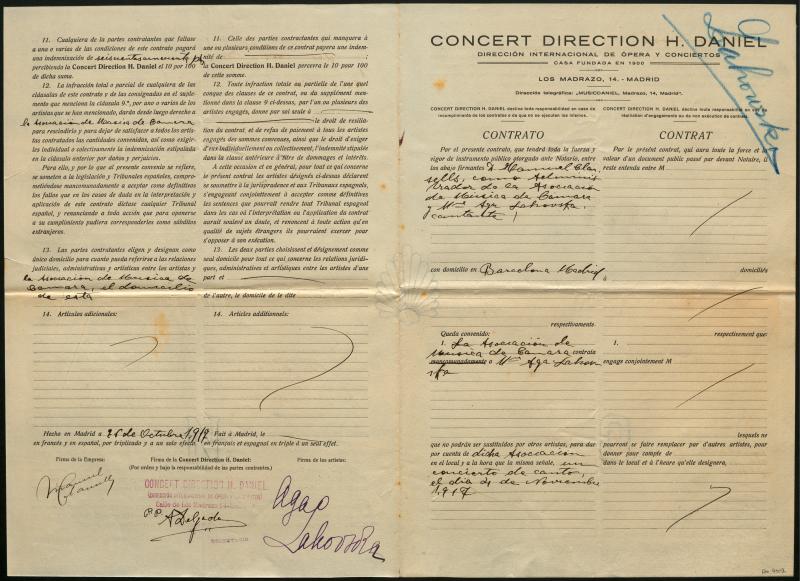 11. Cualquiera de la partes contratantes que faltase
a una o varias de las condiciones de este contrato pagará
una indemnización de
percibiendo la Concert Direction H. Daniel el 10 por 100
de dicha suma.
12. La infracción total o parcial de cualquiera de las
cláusulas de este contrato y de las consignadas en el suple-
mento que menciona la cláusula 9.ª, por uno o varios de los
artistas que se han mencionado, darán desde luego derecho a
la Asociación de Música de Camara
para rescindirlo y para dejar de satisfacer a todos los artis-
tas contratados las cantidades convenidas, así como de exi-
girles individual o colectivamente la indemnización estipulada
en la cláusula anterior por daños y perjuicios.
Para ello, y por lo que al presente convenio se refiere,
se someten a la legislación y Tribunales españoles, compro-
metiéndose mancomunadamente a aceptar como definitivos
los fallos que en los casos de duda en la interpretación y
aplicación de este contrato dictase cualquier Tribunal
español, y renunciando a toda acción que para oponerse
a su cumplimiento pudiera corresponderles como súbditos
extranjeros.
13. Las partes contratantes eligen y designan como
único domicilio para cuanto pueda referirse a las relaciones
judiciales, administrativas y artísticas entre los artistas y
la Asociación de Musica de
Camara, el domicilio
de esta
14. Artículos adicionales:
Hecho en Madrid a 26 de Octubre 1,917
en francés y en español, por triplicado y a un solo efecto.
Firma de la Empresa:
11. Celle des parties contractantes qui manquera à
une ou plusieurs conditions de ce contrat payera une indem-
nité de
la Concert Direction H. Daniel percevra le 10 pour 100
de cette somme.
12. Toute infraction totale ou partielle de l'une quel
conque des clauses de ce contrat, ou du supplément men-
tionné dans la clause 9 ci-dessus, par l'un ou plusieurs des
artistes engagés, donne par seul suite à
le droit de resilia-
tion du contrat, et de refus de paiement à tous les artistes
engagés des sommes convenues, ainsi que le droit d'exiger
d'eux individuellement ou collectivement, l'indemnité stipulée
dans la clause antérieure à titre de dommages et intérêts.
A cette occasion et en général, pour tout ce qui concerne
le présent contrat les artistes désignés ci-dessus déclarent
se soumettre à la jurisprudence et aux Tribunaux espagnols,
s'engageant conjointement à accepter comme définitives
les sentences que pourrait rendre tout Tribunal espagnol
dans les cas où l'interprétation ou l'application du contrat
aurait soulevé un doute, et renoncent à toute action qu'en
qualité de sujets étrangers ils pourraient exercer pour
s'opposer à son exécution.
13. Les deux parties choisissent et désignent comme
seul domicile pour tout ce qui concerne les relations juridi-
ques, administratives et artistiques entre les artistes d'une
part et
de l'autre, le domicile de la dite
14. Articles additionnels:
Fait à Madrid, le
en français et espagnol en triple à un seul effet.
Firma de la Concert Direction H. Daniel:
(Por orden y bajo la responsabilidad de las partes contratantes).
Firma de los artistas:
Manuel
Clausells
CONCERT DIRECTION H. DANIEL
Calle de Los Madrazo 14
P.P. A Delgado
Aga
Lahovska
CONCERT DIRECTION H. DANIEL
DIRECCIÓN INTERNACIONAL DE ÓPERA Y CONCIERTOS
CASA FUNDADA EN 1900
LOS MADRAZO, 14. - MADRID
Dirección telegráfica: „MUSICDANIEL, Madrazo, 14, Madrid".
Lahovska
CONCERT DIRECTION H. DANIEL declina toda responsabilidad en caso de
incumplimiento de los contratos o de que no se ejecuten los mismos.
CONTRATO
Por el presente contrato, que tendrá toda la fuerza y
vigor de instrumento público otorgado ante Notario, entre
los abajo firmantes D. Manuel Clau
sells, como Adminis
trador de la Asociación
de Musica de Camara
y Mme Aga Lahovska,
cantante
con domicilio en Barcelona Madrid,
respectivamente.
Queda convenido:
1. La Asociación de
Musica de Camara contrata
mancomunadamente a Mme Aga Lahovs
ka
que no podrán ser sustituidos por otros artistas, para dar
por cuenta de dicha Asociacion
en el local y a la hora que la misma señale, un
concierto de canto,
el dia 4 de Noviembre
1,917
CONCERT DIRECTION H. DANIEL décline toute responsabilité en cas de
résiliation d'engagements ou de non exécution des contrats.
CONTRAT
Par le présent contrat, qui aura toute la force et la
valeur d'un document public passé par devant Notaire, il
reste entendu entre M
domiciliés
respectivement que:
1.
engage conjointement M
lesquels ne
pourront se faire remplacer par d'autres artistes, pour
donner pour compte de
dans le local et à l'heure qu'elle designera,